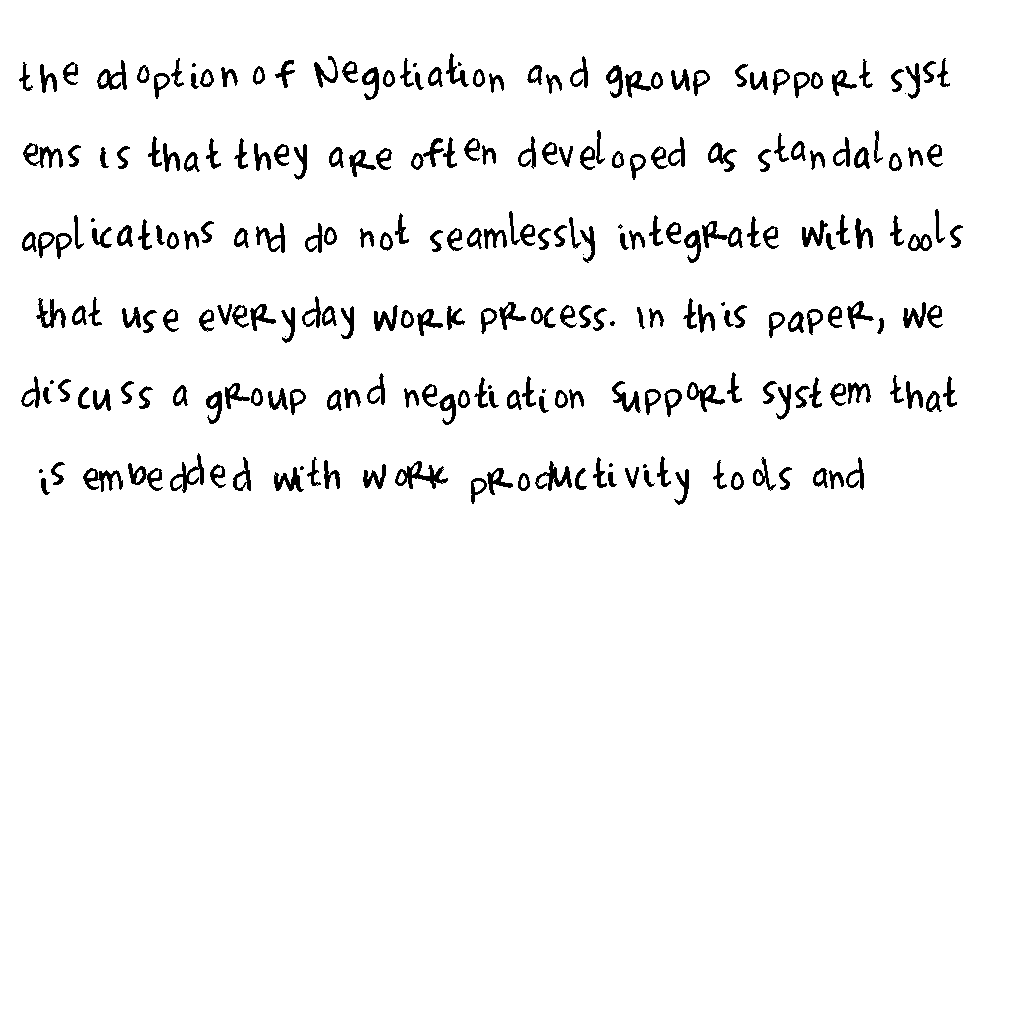 the adoption of Negotiation and group support syst
ems is that they are often developed as standalone
applications and do not seamlessly integrate with tools
that use everyday work process. in this paper, we
discuss a group and negotiation support system that
is embedded with work productivity tools and